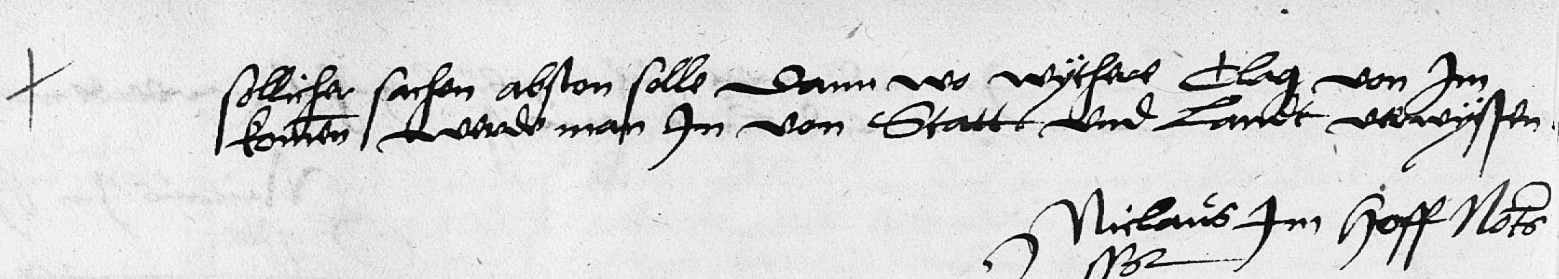 sollicher sachen abston solle Dann wo wÿthere Clag von Im
komen werde man Im von Statt und Landt verwÿssen.
Niclaus Im Hoff Nots
sst